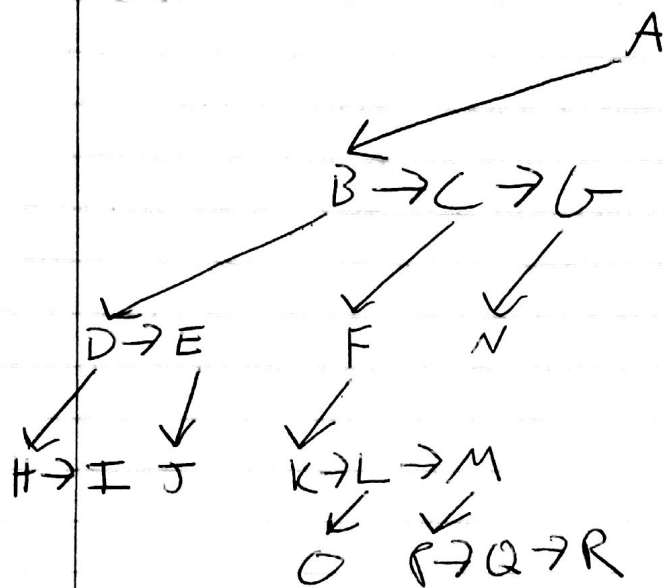 A
B → C → G
D → E F N
H → I J K → L → M
O P → Q → R